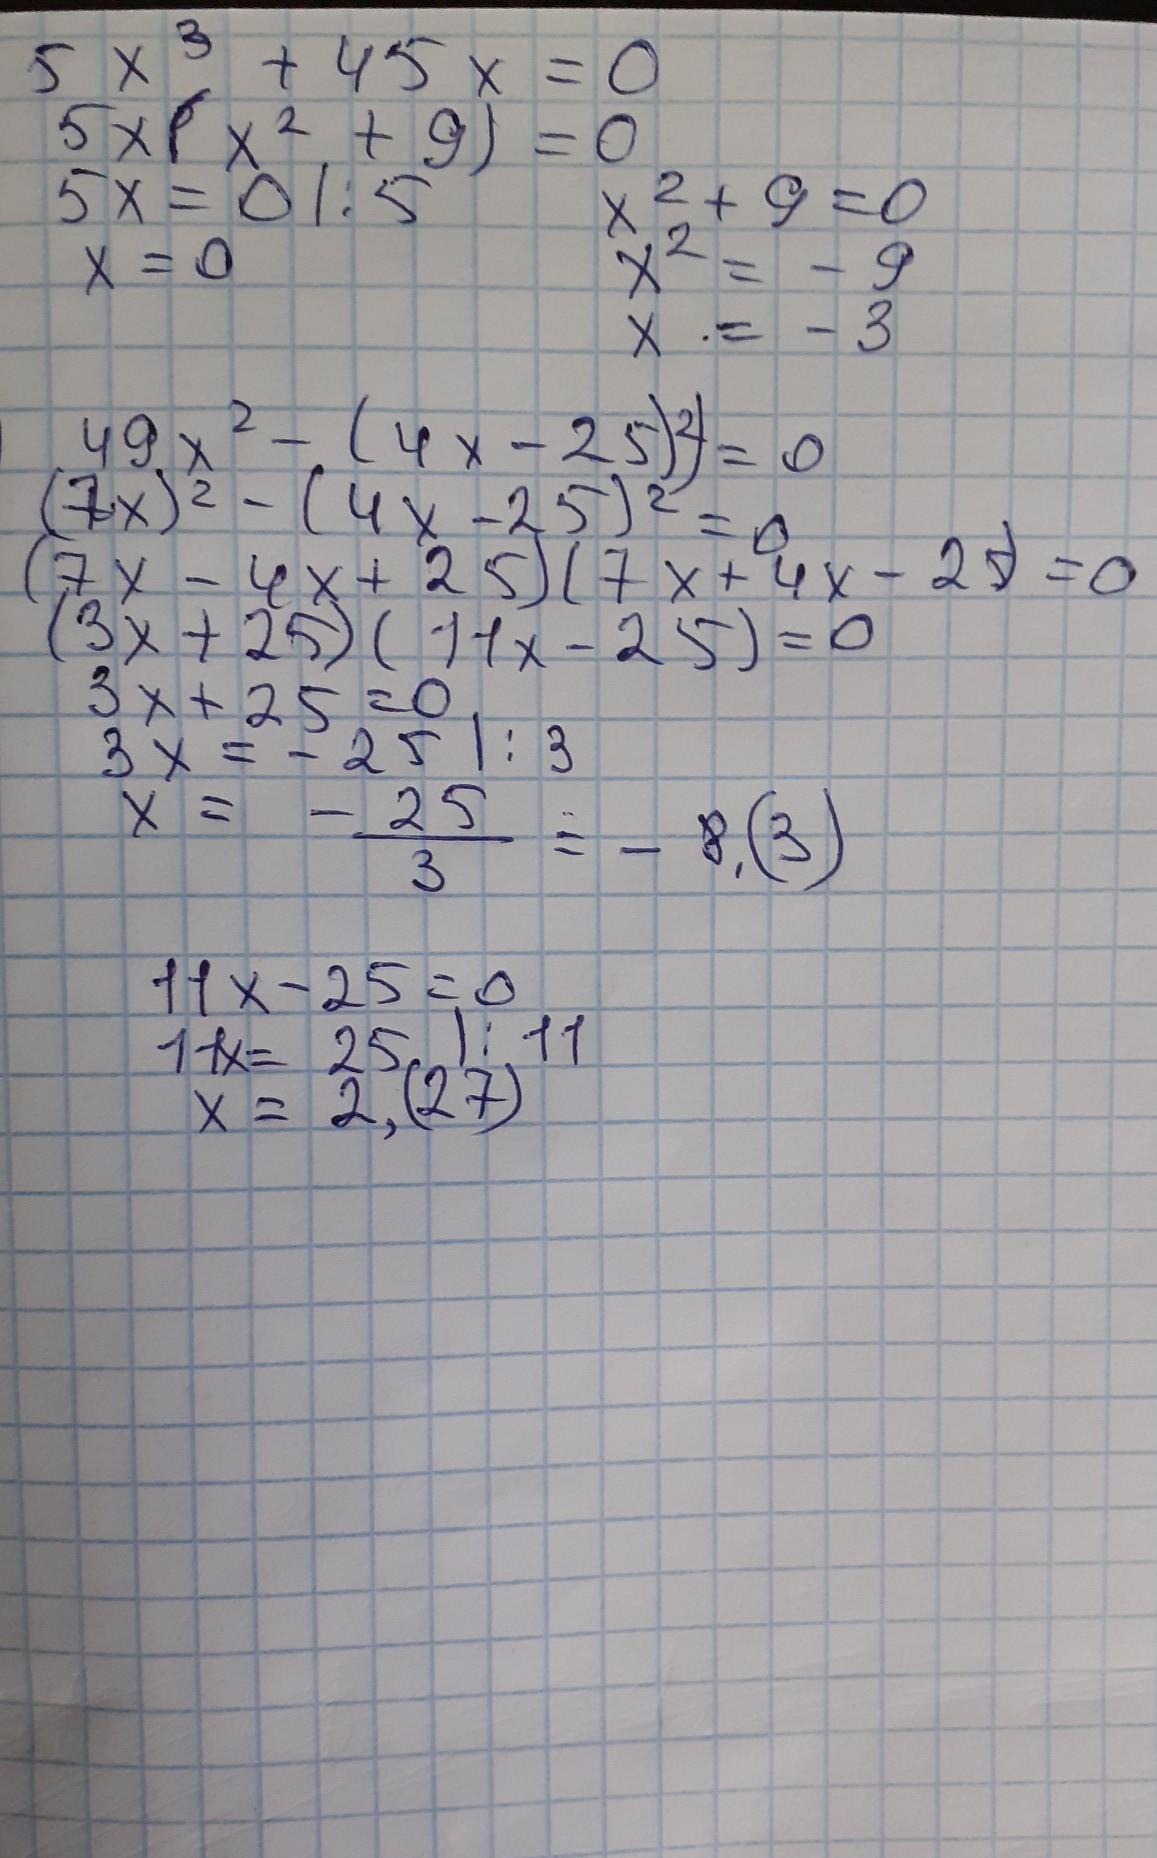 5x³ + 45x = 0
5x(x² + 9) = 0
5x = 0 |: 5
x = 0
x² + 9 = 0
x² = - 9
x = - 3
49x² - (4x - 25)² = 0
(7x)² - (4x - 25)² = 0
(7x - 4x + 25)(7x + 4x - 25) = 0
(3x + 25)(11x - 25) = 0
3x + 25 = 0
3x = - 25 |: 3
x = - 25/3 = - 8,(3)
11x - 25 = 0
11x = 25 |: 11
x = 2,(27)